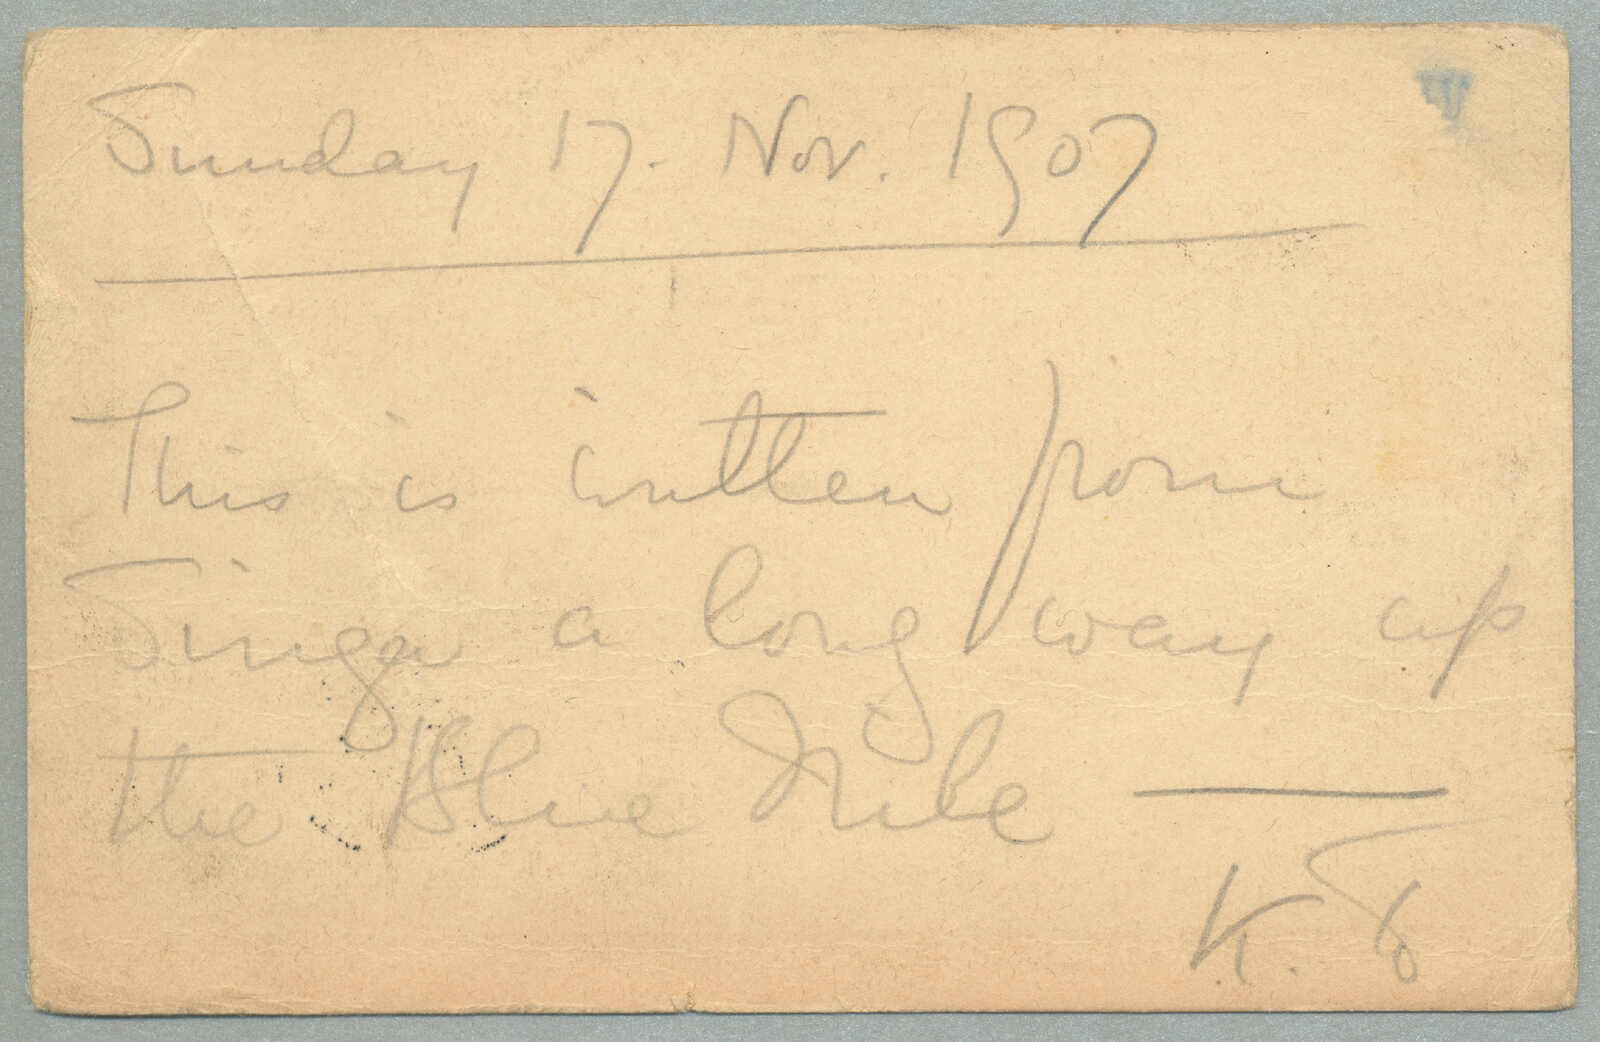 Sunday 17. Nov. 1907
This is written from
Singa a long way up
the Blue Nile —
K.